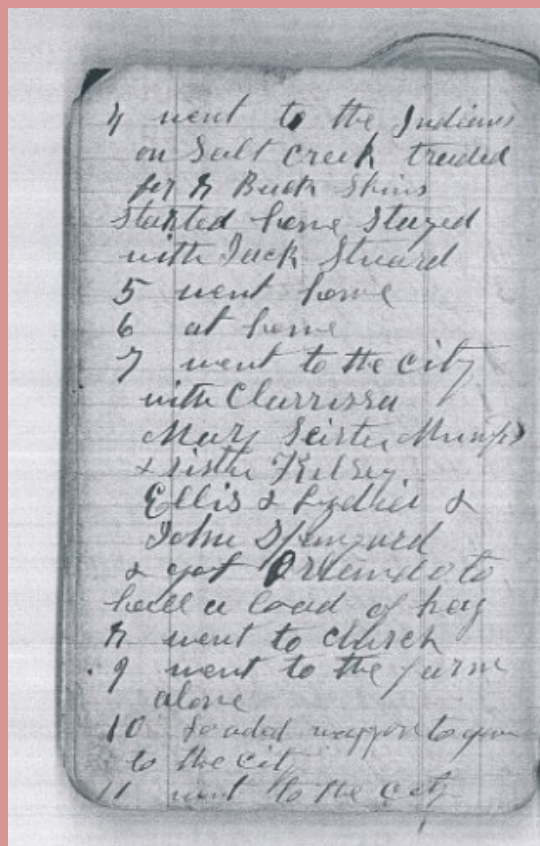 4 went to the Indians
on Salt creek traded
for 8 Buck Skins
started home stayed
with Jack Stuard
5 went home
6 at home
7 went to the city
with Clarrissa
Mary Seister
& sister Kelsey
Ellis & Lydia &
John
& got Orlando to
hall a load of hay
8 went to church
9 went to the farm
alone
10 loaded waggon to
to the city
11 went to the city